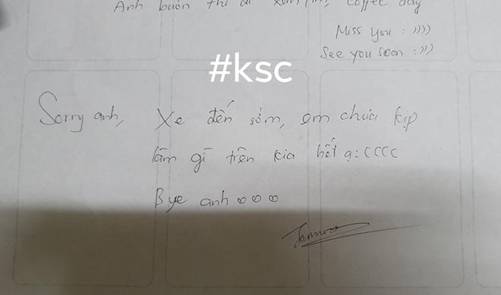 Anh buồn thì đi xuống, coffee đây
Miss you :))))
See you soon :)))
#ksc
Sorry anh, Xe đến sớm, em chưa kịp
làm gì trên kia hết ạ :((((
Bye anh ooo